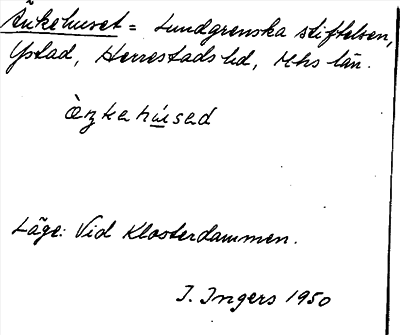 Änkehuset = Lundgrenska stiftelsen,
Ystad, Herrestads hd, Mhs län.
àŋkehúsad
Läge: Vid Klosterdammen.
I. Ingers 1950